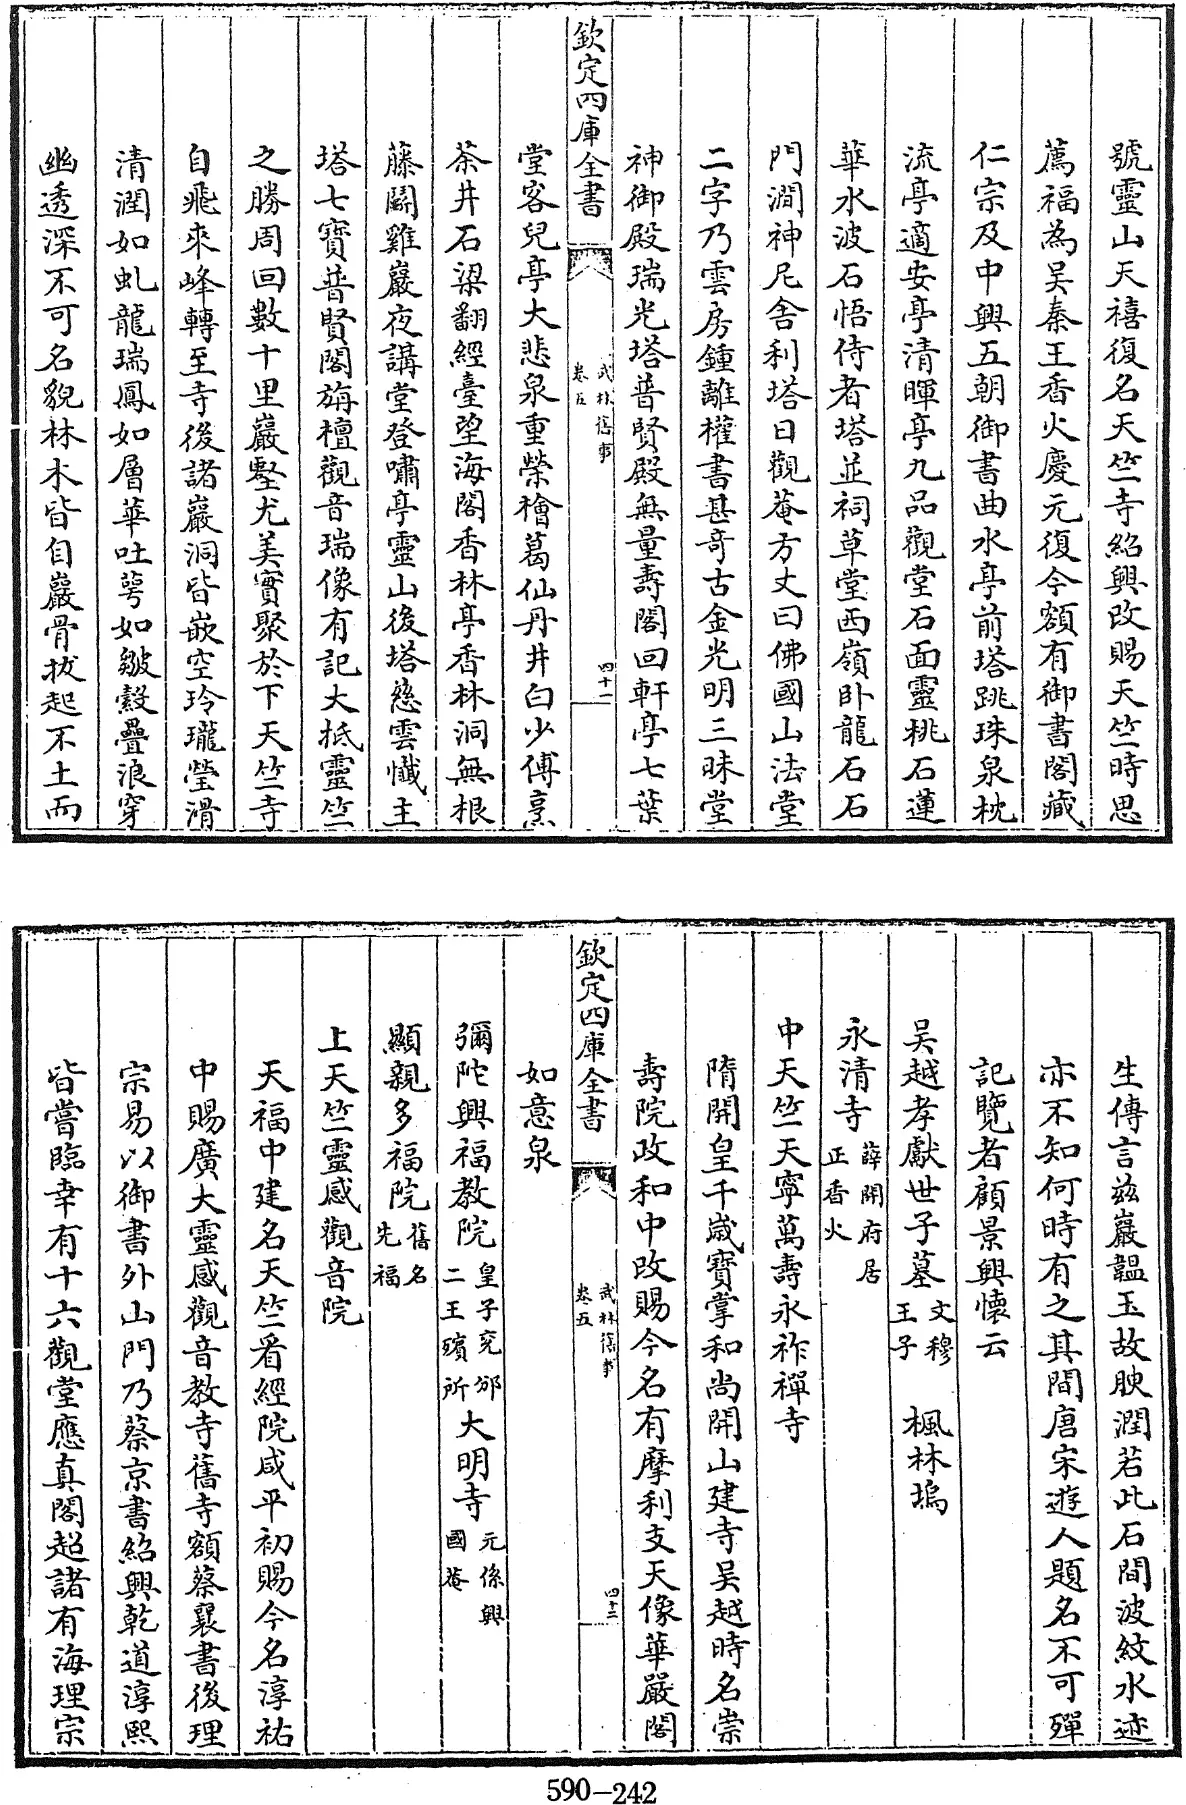 號靈山天禧復名天竺寺紹興改賜天竺時思
薦福為吴秦王香火慶元復今額有御書閣藏
仁宗及中興五朝御書曲水亭前塔跳珠泉枕
流亭適安亭清暉亭九品觀堂石面靈桃石蓮
華水波石悟侍者塔並祠草堂西嶺卧龍石石
門澗神尼舍利塔日觀菴方丈曰佛國山法堂
二字乃雲房鍾離權書甚奇古金光明三昧堂
神御殿瑞光塔普賢殿無量壽閣回軒亭七葉
欽定四庫全書
武林舊事
卷五
四十一
堂客兒亭大悲泉重榮檜葛仙丹井白少傅烹
茶井石梁翻經臺望海閣香林亭香林洞無根
藤鬬雞巖夜講堂登嘯亭靈山後塔慈雲懺主
塔七寶普賢閣旃檀觀音瑞像有記大抵靈竺
之勝周回數十里巖壑尤美實聚於下天竺寺
自飛來峰轉至寺後諸巖洞皆嵌空玲瓏瑩滑
清潤如虬龍瑞鳳如層華吐萼如皺縠疊浪穿
幽透深不可名貌林木皆自巖骨拔起不土而
生傳言兹巖韞玉故腴潤若此石間波紋水迹
亦不知何時有之其間唐宋遊人題名不可殫
記覽者顧景興懷云
吴越孝獻世子墓 文穆王子 楓林塢
永清寺 薛開府居正香火
中天竺天寧萬壽永祚禪寺
隋開皇千歲寶掌和尚開山建寺吴越時名崇
壽院政和中改賜今名有摩利支天像華嚴閣
欽定四庫全書
武林舊事
卷五
四十二
如意泉
彌陀興福教院 皇子兖邠二王殯所 大明寺 元係興國菴
顯親多福院 舊名先福
上天竺靈感觀音院
天福中建名天竺看經院咸平初賜今名淳祐
中賜廣大靈感觀音教寺舊寺額蔡襄書後理
宗易以御書外山門乃蔡京書紹興乾道淳熙
皆嘗臨幸有十六觀堂應真閣超諸有海理宗
590-242